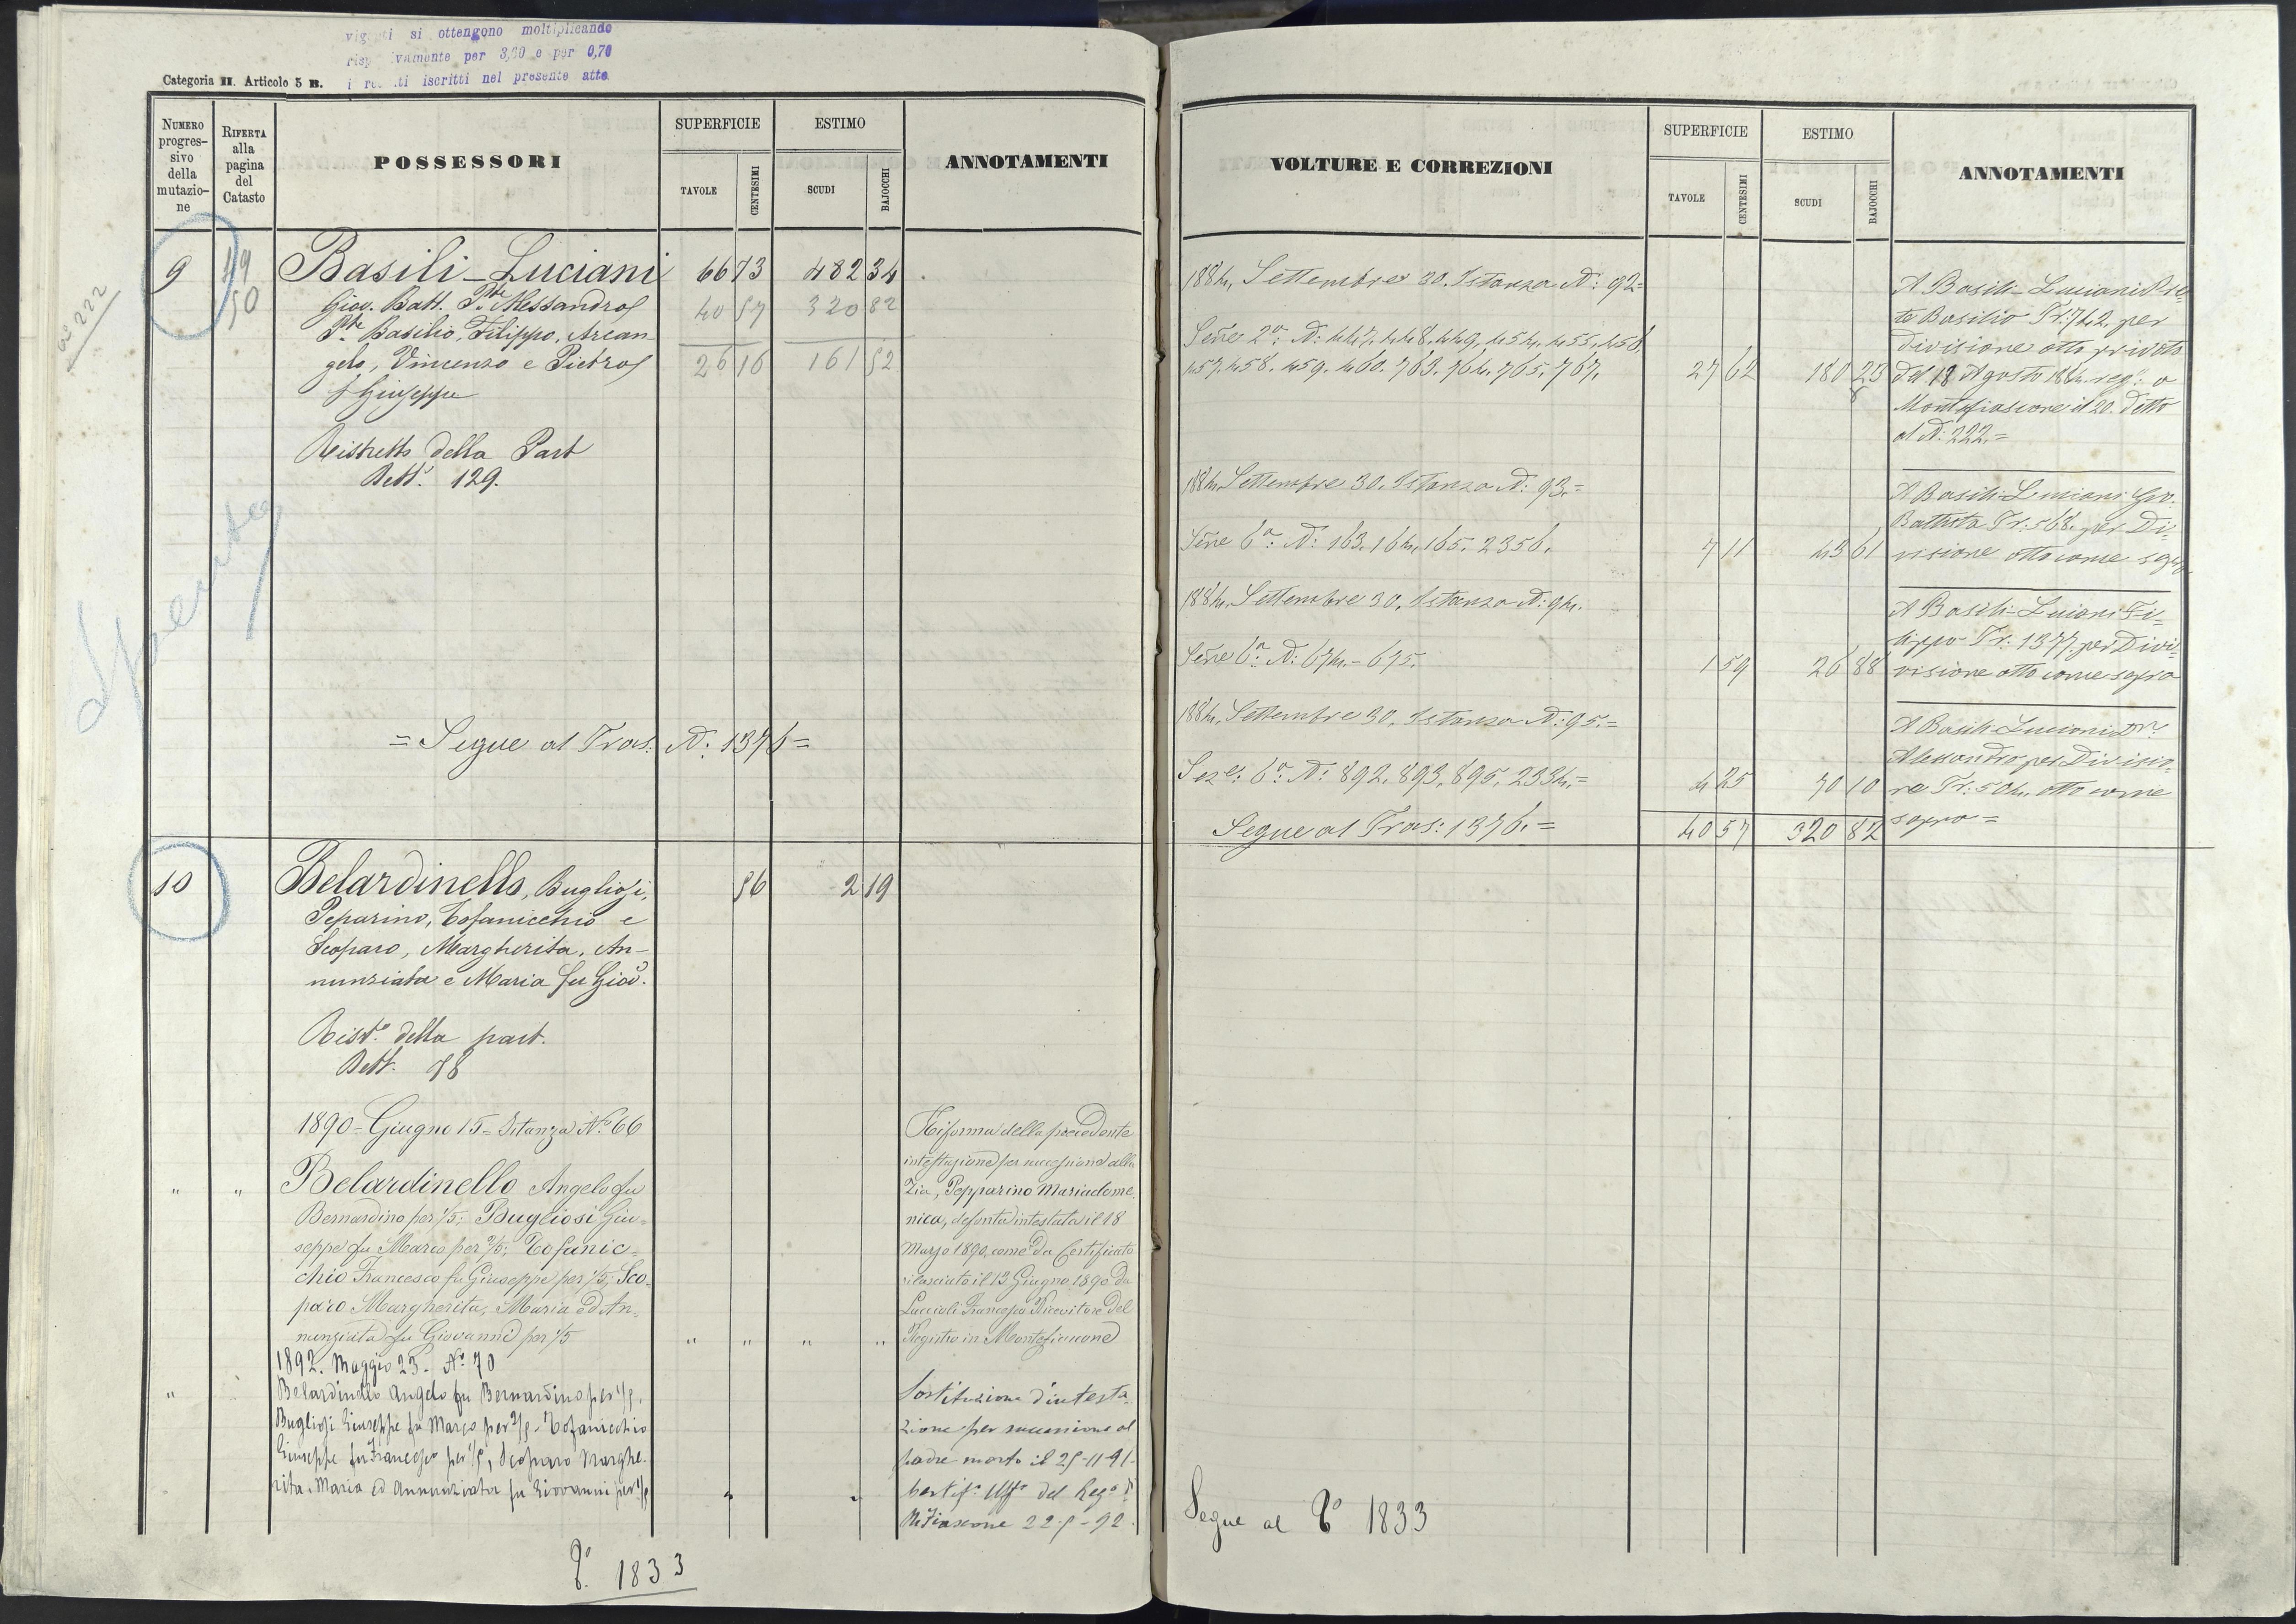 si ottengono moltiplicando
per 3,60 e per 0,70
i iscritti nel presente atto
Categoria II. Articolo 5 B.
NUMERO progressivo della mutazione
RIFERTA alla pagina del Catasto
POSSESSORI
SUPERFICIE
TAVOLE
CENTESIMI
ESTIMO
SCUDI
BAJOCCHI
ANNOTAMENTI
9
Basili-Luciani 66 73 482 34
50
Giov. Batt. Alessandro 40 57 320 82
Basilio, Filippo, Arcan
gelo, Vincenzo e Pietro 26 16 161 52
f Giuseppe
Ristretto della Part
Dett. 129.
N° 222
Spenta
= Segue al Tras: N: 1376 =
10
Belardinello, Bugliosi, 56 2 19
Peparino, Tofanicchio e
Scoparo, Margherita, An-
nunziata e Maria fu Giov.
Rist.o della part.
Dett. 58
1890 = Giugno 15 = Istanza N.o 66
" " Belardinello Angelo fu
Bernardino per 1/5; Bugliosi Giu=
seppe fu Marco per 2/5; Tofanic=
chio Francesco fu Giuseppe per 1/5; Sco=
paro Margherita, Maria ed An=
nunziata fu Giovanni per 1/5 " " " "
Riforma della precedente
intestazione per successione alla
Zia, Pepparino Mariadome
nica, defonta intestata il 18
Marzo 1890, come da Certificato
rilasciato il 13 Giugno 1890 da
Luccioli Francesco Ricevitore del
Registro in Montefiascone
1892. Maggio 23 - N.o 70
" Belardinello Angelo fu Bernardino per 1/5,
Bugliosi Giuseppe fu Marco per 2/5 - Tofanicchio
Giuseppe fu Francesco per 1/5, Scoparo Marghe-
rita, Maria ed Annunziata fu Giovanni per 1/5 " "
Sostituzione d'intesta
zione per successione al
padre morto il 25-11-91
Certif.o Uff.o del Reg.o di
M.Fiascone 22-5-92.
T.o 1833
VOLTURE E CORREZIONI
SUPERFICIE
TAVOLE
CENTESIMI
ESTIMO
SCUDI
BAJOCCHI
ANNOTAMENTI
1884, Settembre 30. Istanza N: 92=
Sene 2a: N: 447, 448, 449, 454, 455, 456,
457, 458. 459. 460. 763. 764. 765. 767. 27 62 180 23
A Basili-Luciani
Basilio Tr: 742, per
divisione atto privato
del 18 Agosto 1884 reg: a
Montefiascone il 20. detto
al N: 222. =
1884, Settembre 30. Istanza N: 93. =
Sene 6a: N: 163. 164. 165. 2356. 7 11 43 61
A Basili-Luciani Gio.
Battista Tr: 568. per Di=
visione atto come sopra
1884. Settembre 30. Istanza N: 94.
Sene 6a: N: 674. - 675. 1 59 26 88
A Basili-Luciani Fi=
lippo Tr: 1377. per Divi=
visione atto come sopra
1884. Settembre 30. Istanza N: 95. =
Seze: 6a: N: 892. 893. 895. 2334. = 4 25 70 10
A Basili-Luciani
Alessandro per Divisio=
ne Tr: 504. atto come
sopra =
Segue al Tras: 1376. = 40 57 320 82
Segue al T.o 1833